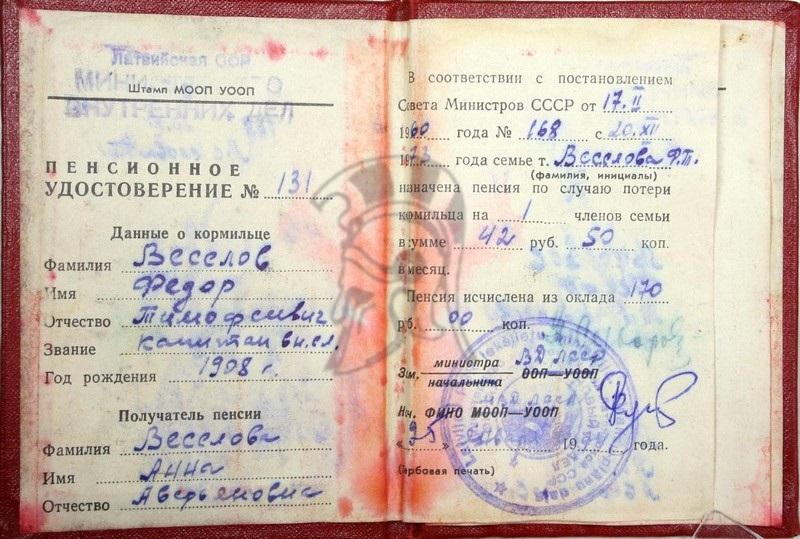 Латвийская ССР
МИНИСТЕРСТВО
ВНУТРЕННИХ ДЕЛ
Штамп МООП УООП
ПЕНСИОННОЕ
УДОСТОВЕРЕНИЕ № 131
Данные о кормильце
Фамилия Веселов
Имя Федор
Отчество Тимофеевич
Звание капитан вн.сл.
Год рождения 1908 г.
Получатель пенсии
Фамилия Веселова
Имя Анна
Отчество Аверьяновна
В соответствии с постановлением
Совета Министров СССР от 17.II
1960 года № 168 с 20.XII
года семье т. Веселова Ф.Т.
(фамилия, инициалы)
назначена пенсия по случаю потери
комильца на 1 членов семьи
в сумме 42 руб. 50 коп.
в месяц.
Пенсия исчислена из оклада 170
руб. 00 коп.
министра ВД ЛССР
Зам. начальника ООП—УООП
Нч. ФИНО МООП—УООП
«25» 19 года.
(гербовая печать)